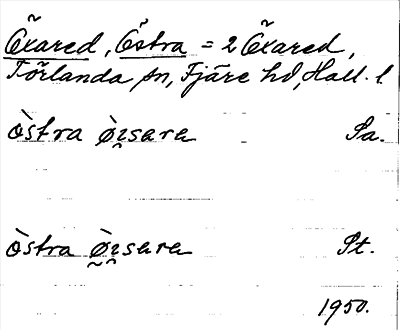 Öxared, Östra = 2 Öxared,
Förlanda sn, Fjäre hd, Hall. l
òstra ø̀ısara Sa.
òstra ø̀ısara St.
1950.